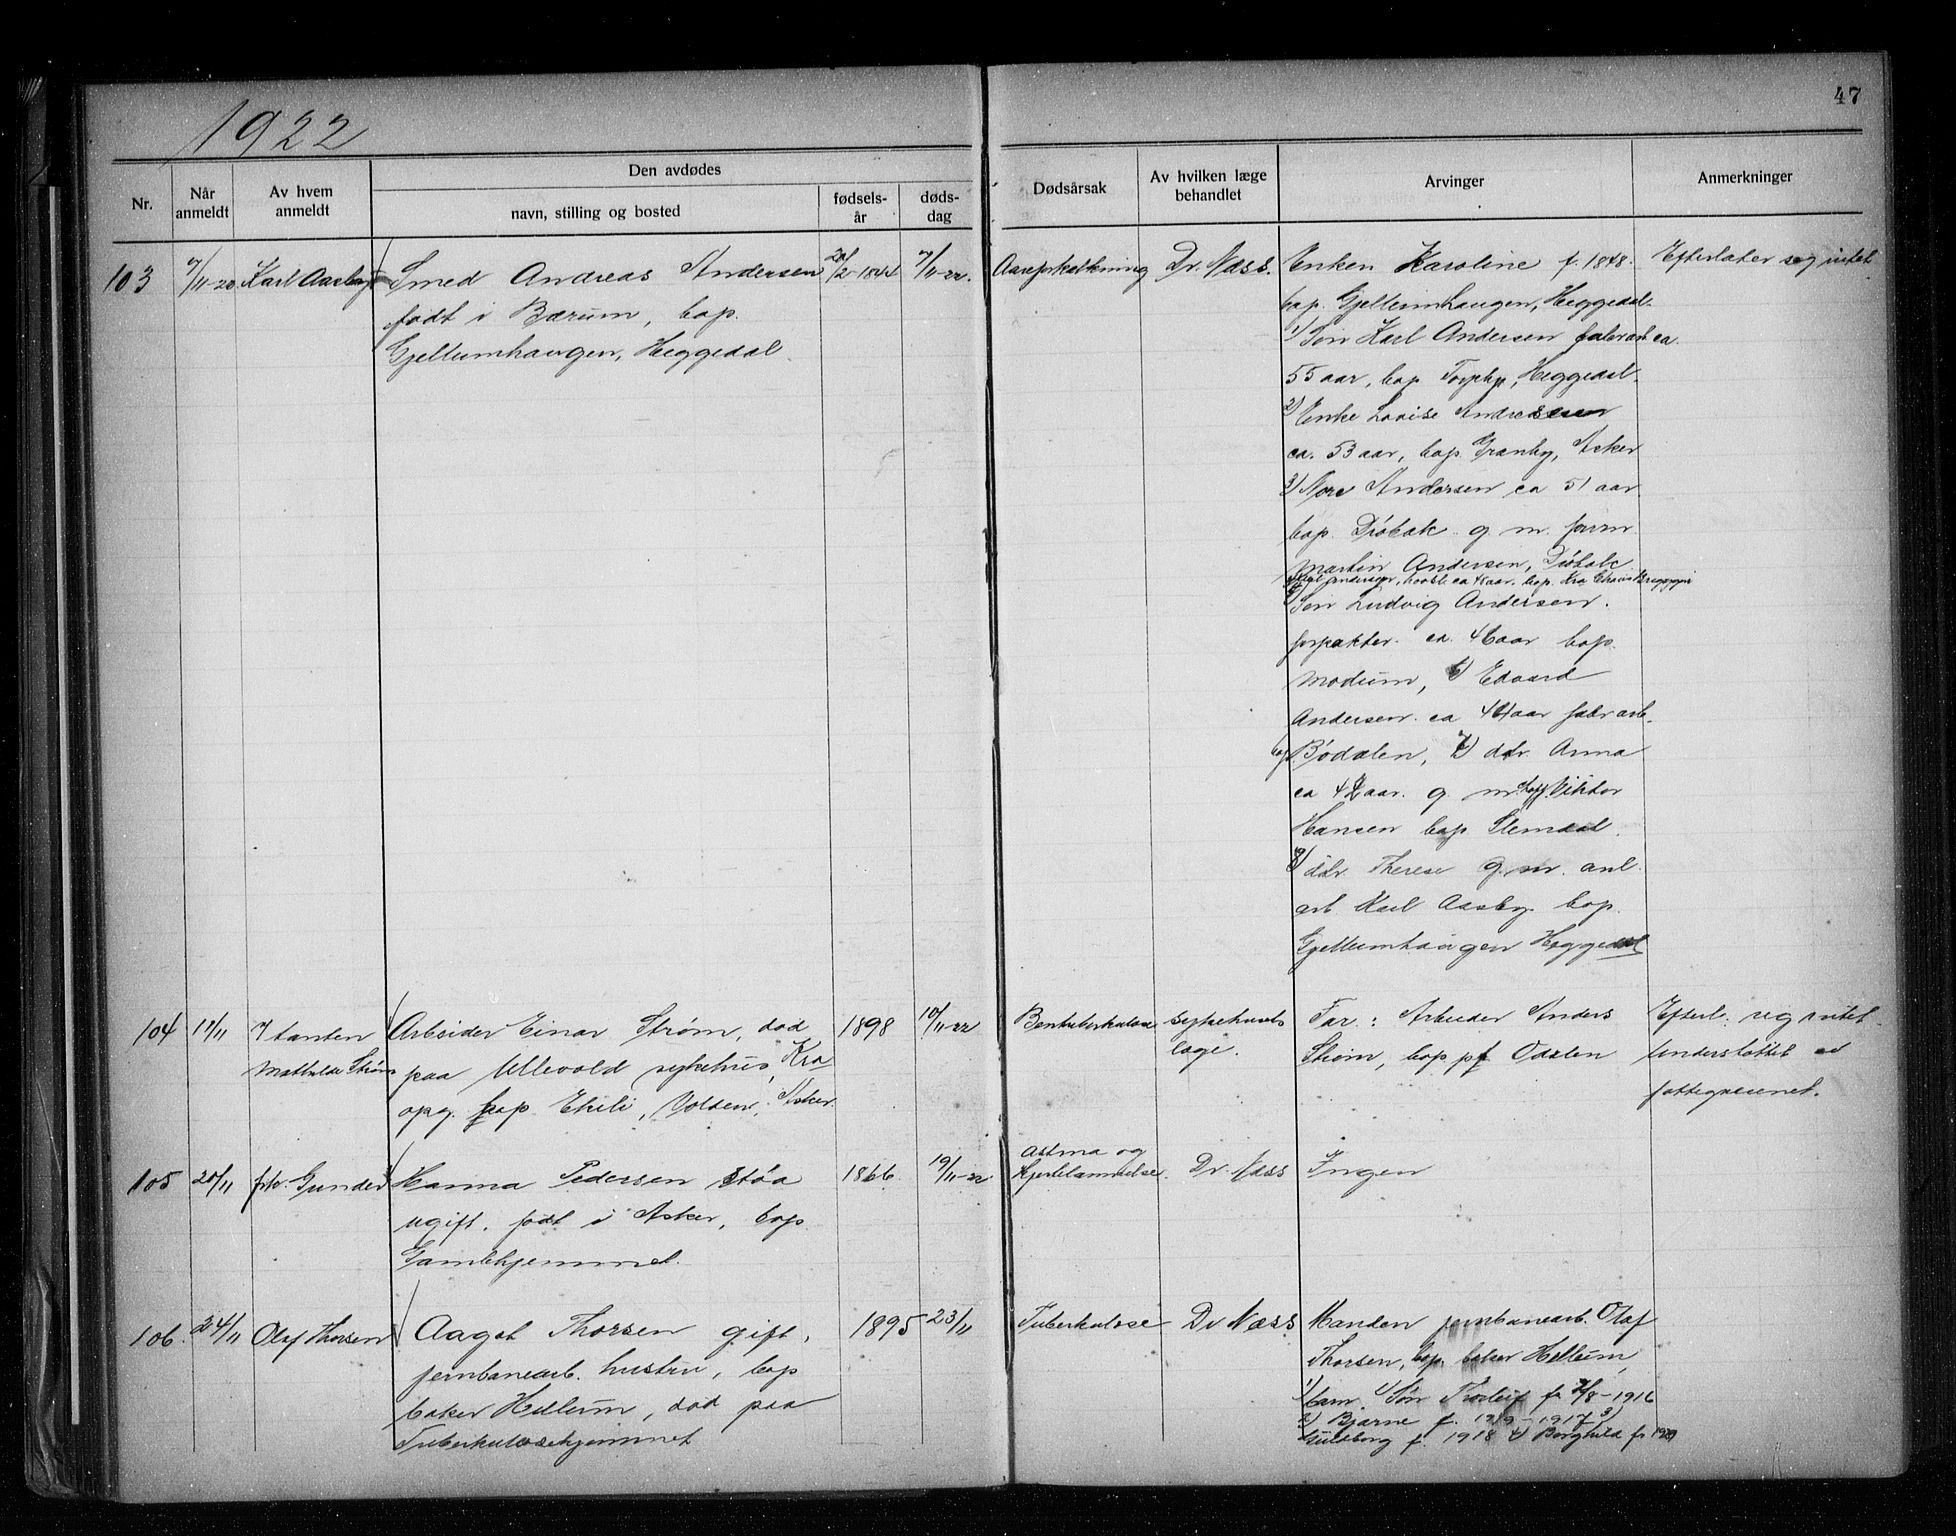 1922
47
Nr.
Når anmeldt
Av hvem anmeldt
Den avdødes
navn, stilling og bosted
fødsels-år
døds-dag
Dødsårsak
Av hvilken læge behandlet
Arvinger
Anmerkninger
103 7/11-22 Karl Aasby Smed Andreas Andersen 7/11-22. Aareforkalkning Dr. Næss. Enken Karoline f. 1848. Efterlater seg intet
født i Bærum, bop.
Gjellumhaugen, Heggedal.
bop. Gjellumhaugen, Heggedal.
1) Søn Karl Andersen fabr arb ca.
55 aar, bop Heggedal.
2) Enke Lovise Andresen
ca. 53 aar, bop. Granby, Asker
3) Andersen ca 51 aar
bop. Drøbak g. m. form
Martin Andersen, Drøbak
Andersen, ca 48 aar. bop. Kra
5) Søn Ludvig Andersen.
forpakter. ca. 46 aar bop.
Modum, 6) Edvard
Andersen. ca 44 aar fabr arb.
bop Bødalen, 7) dtr. Anna
ca 42 aar. g. m. Viktor
Hansen bop Slemdal.
8) dtr. Therese g. m. anl.
arb Karl Aasby. bop.
Gjellumhaugen Heggedal
104 17/11 Tanten Arbeider Einar Strøm, død 1898 10/11-22 Bentuberkulose Sykehuslæge. Far: Arbeider Anders Efterl: sig intet.
Mathilde Strøm paa Ullevold sykehus, Kra
Strøm, bop. på Odalen Understøttet av
opg. bop. Ekeli, Volden, Asker.
fattigvæsenet.
105 20/11 frk. Gunder Hanna Pedersen Støa 1866. 19/11-22 Astma og Hjertelammelse. Dr. Næss Ingen
ugift. født i Asker, bop
Gamlehjemmet.
106. 24/11 Olaf Thorsen Aagot Thorsen gift, 1895 23/11 Tuberkulose Dr Næss Manden jernbanearb. Olaf
jernbanearb. hustru, bop
Thorsen, bop. baker Hellum,
baker Hellum, død paa
barn. 1) Søn Thorleif f. 2/8-1916
Tuberkulosehjemmet
2) Bjarne f. 1917 3)
Guldborg f. 1918 4) Borghild f.